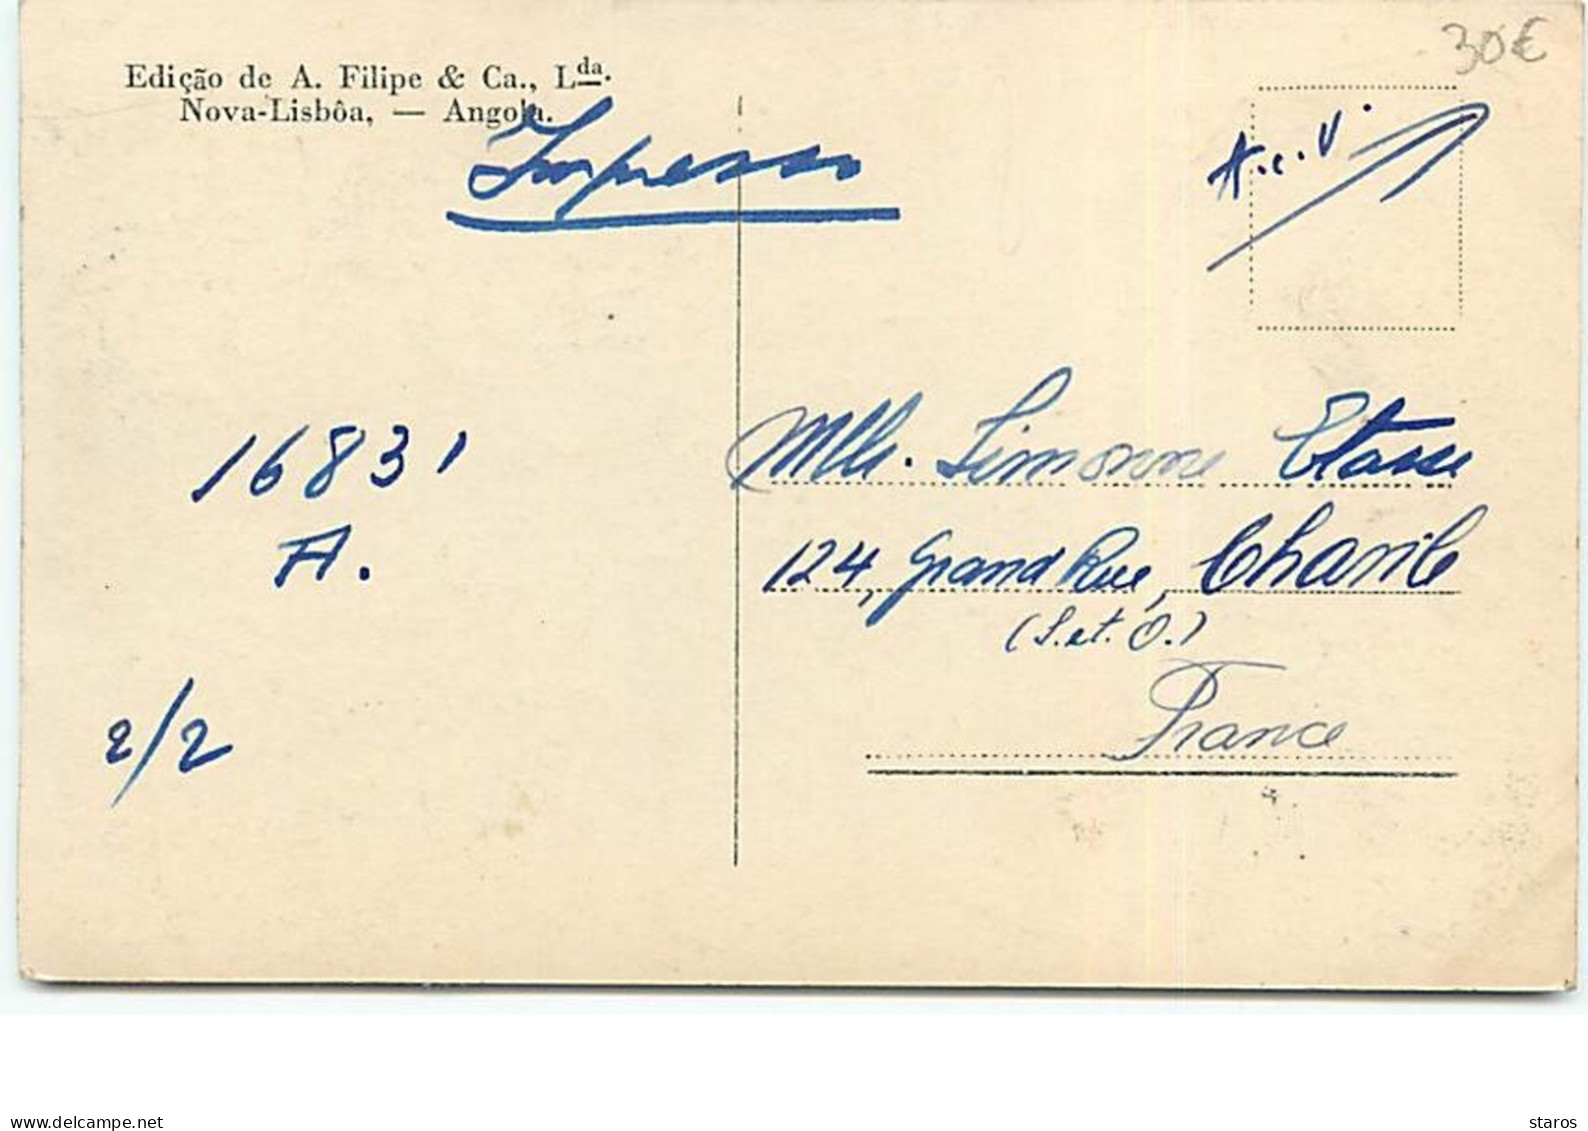 30€
Edição de A. Filipe & Ca., Lda.
Nova-Lisbôa, — Angola.
Impresso
A.c.V.
16831
A.
2/2
Mlle. Simonne Etasse
124, Grand Rue, Chaville
(S. et. O.)
France
www.delcampe.net
staros